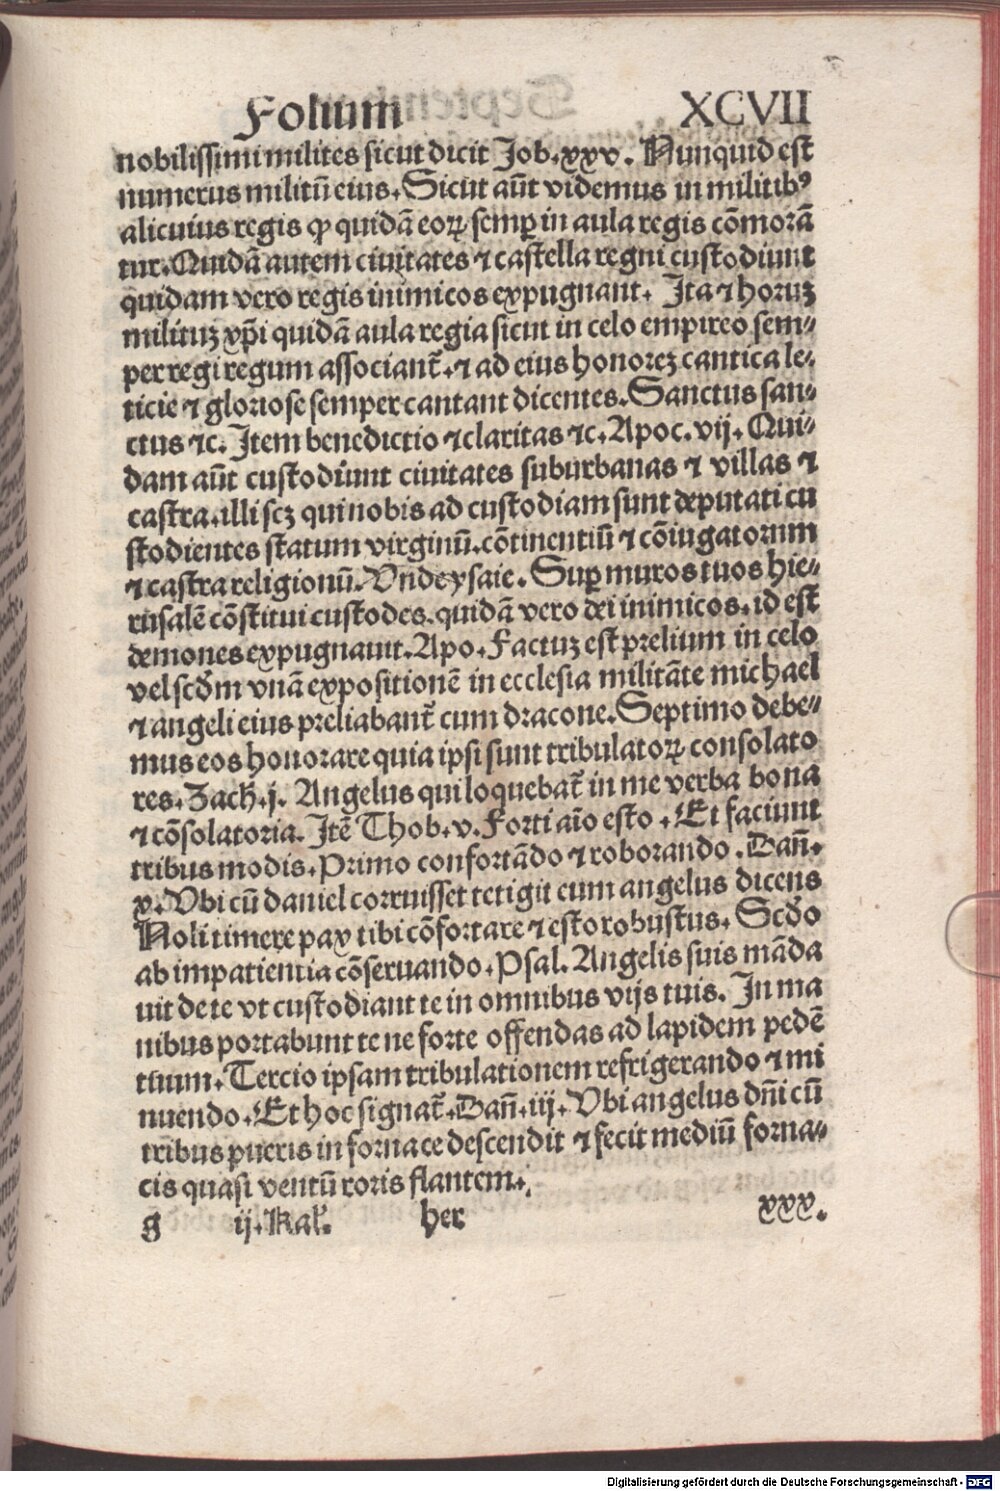 Folium XCVII
nobilissimi milites sicut dicit Job.xxv. Nunquid est
numerus militū eius. Sicut aūt videmus in militibꝰ
alicuius regis ꝙ quidā eoꝝ semꝑ in aula regis cōmorā
tur. Quidā autem ciuitates ⁊ castella regni custodiunt
quidam vero regis inimicos expugnant. Ita ⁊ horuꝫ
milituꝫ xp̄i quidā aula regia sicut in celo empireo sem⸗
per regi regum associant̄. ⁊ ad eius honoreꝫ cantica le⸗
ticie ⁊ gloriose semper cantant dicentes. Sanctus san⸗
ctus ⁊c. Item benedictio ⁊ claritas ⁊c. Apoc. vij. Qui⸗
dam aūt custodiunt ciuitates suburbanas ⁊ villas ⁊
castra. illi scꝫ qui nobis ad custodiam sunt deputati cu
stodientes statum virginū. cōtinentiū ⁊ cōiugatorum
⁊ castra religionū. Vnde ysaie. Suꝑ muros tuos hie⸗
rusalē cōstitui custodes. quidā vero dei inimicos. id est
demones expugnant. Apo. Factuꝫ est prelium in celo
vel scd̓m vnā expositionē in ecclesia militāte michael
⁊ angeli eius preliabant̄ cum dracone. Septimo debe⸗
mus eos honorare quia ipsi sunt tribulatoꝝ consolato
res. Zach̄. j. Angelus qui loquebat̄ in me verba bona
⁊ cōsolatoria. Itē Thob. v. Forti aīo esto. Et faciunt
tribus modis. Primo confortādo ⁊ roborando. Dan̄.
x. Vbi cū daniel corruisset tetigit eum angelus dicens
Noli timere pax tibi cōfortare ⁊ esto robustus. Scd̓o
ab impatientia cōseruando. Psal. Angelis suis māda
uit de te vt custodiant te in omnibus vijs tuis. In ma
nibus portabunt te ne forte offendas ad lapidem pedē
tuum. Tercio ipsam tribulationem refrigerando ⁊ mi
nuendo. Et hoc signat̄. Dan̄. iij. Vbi angelus dn̄i cū
tribus pueris in fornace descendit ⁊ fecit mediū forna⸗
cis quasi ventū roris flantem.
g ij. Kal̄. ber xxx.
Digitalisierung gefördert durch die Deutsche Forschungsgemeinschaft - DFG